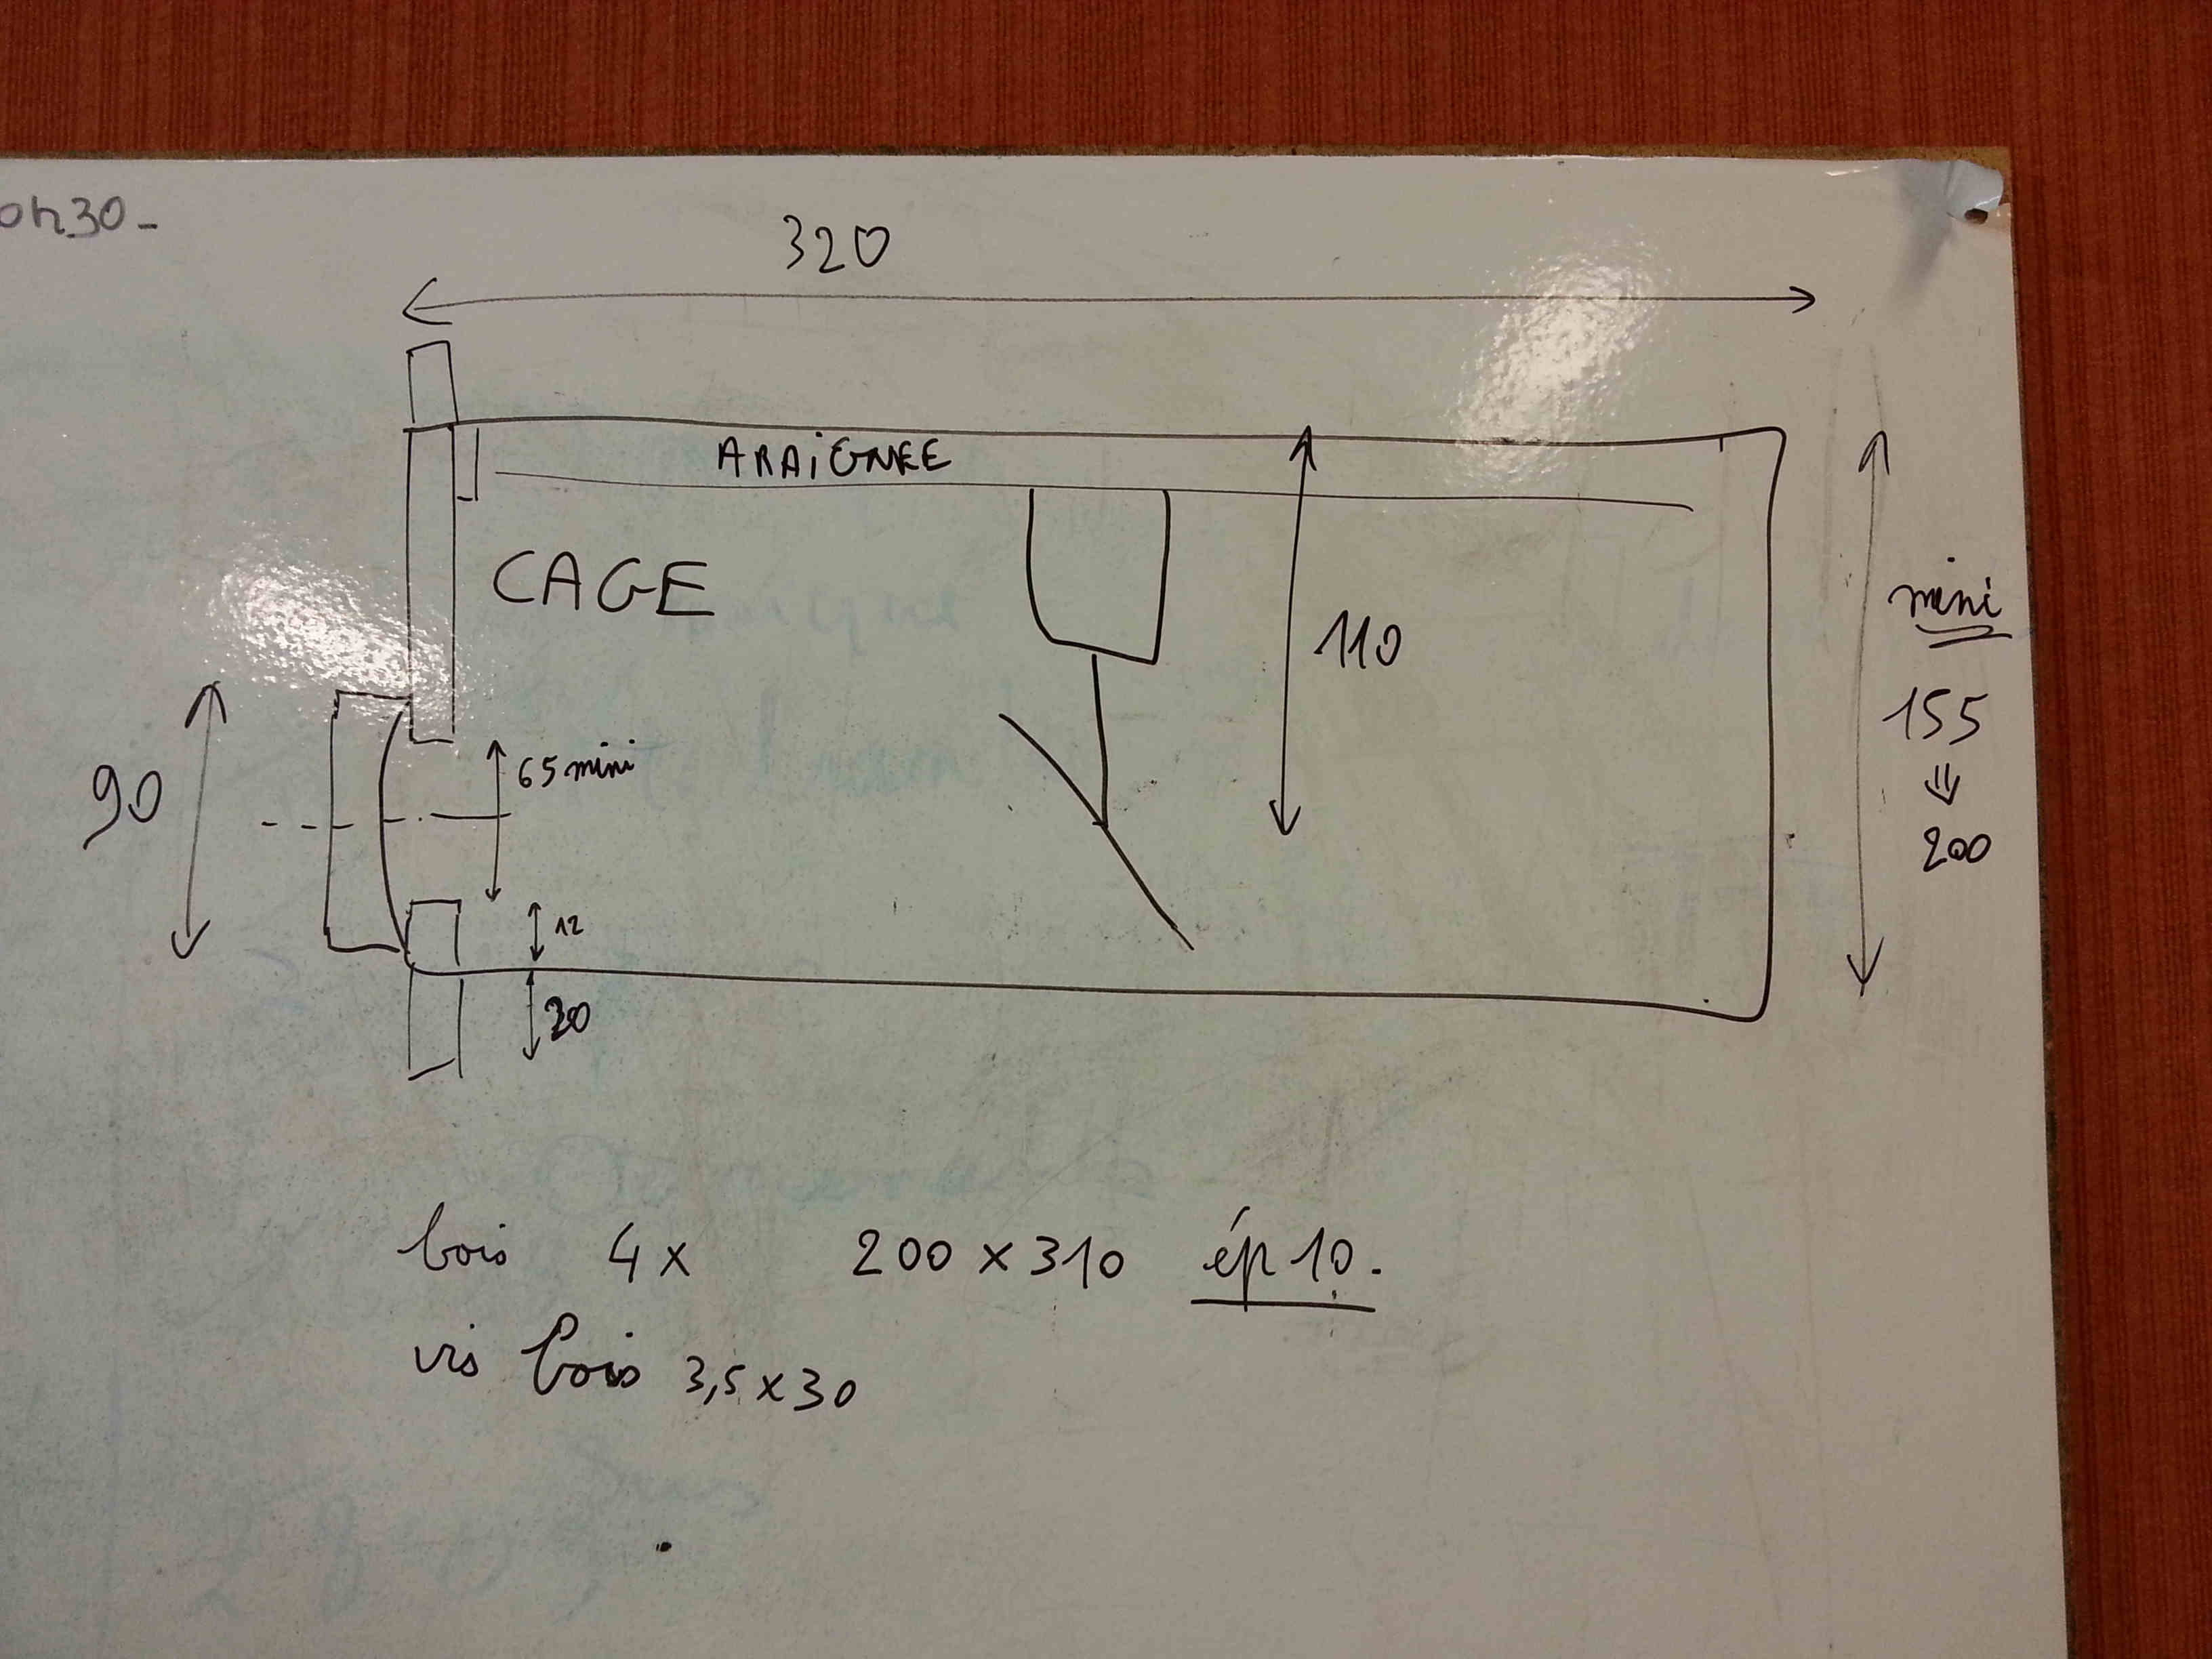 320
ARAIGNEE
CAGE
110
mini
155
⇓
200
90
65 mini
12
20
bois 4x 200 x 310 ép 10.
vis bois 3,5 x 30